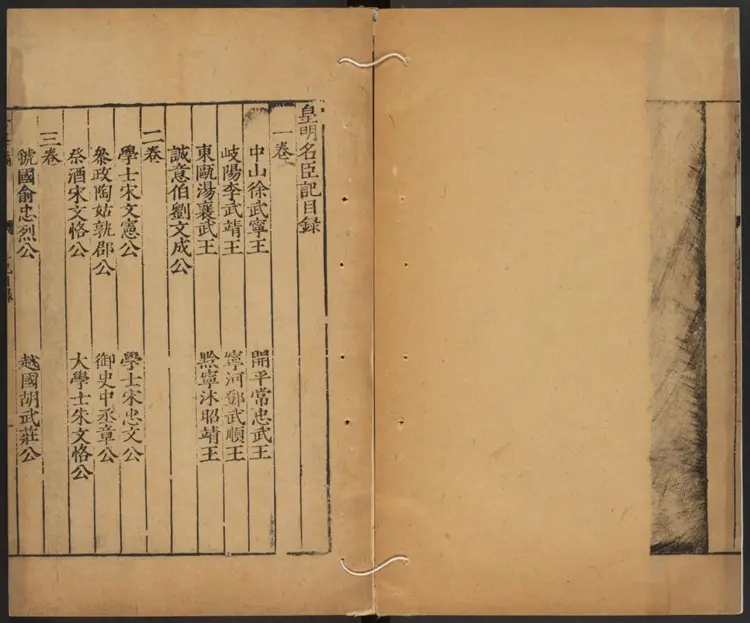 皇明名臣記目録
一卷
中山徐武寧王
開平常忠武王
岐陽李武靖王
寧河鄧武順王
東甌湯襄武王
黔寧沐昭靖王
誠意伯劉文成公
二卷
學士宋文憲公
學士宋忠文公
叅政陶姑孰郡公
御史中丞章公
祭酒宋文恪公
大學士朱文恪公
三卷
虢國俞忠烈公
越國胡武莊公